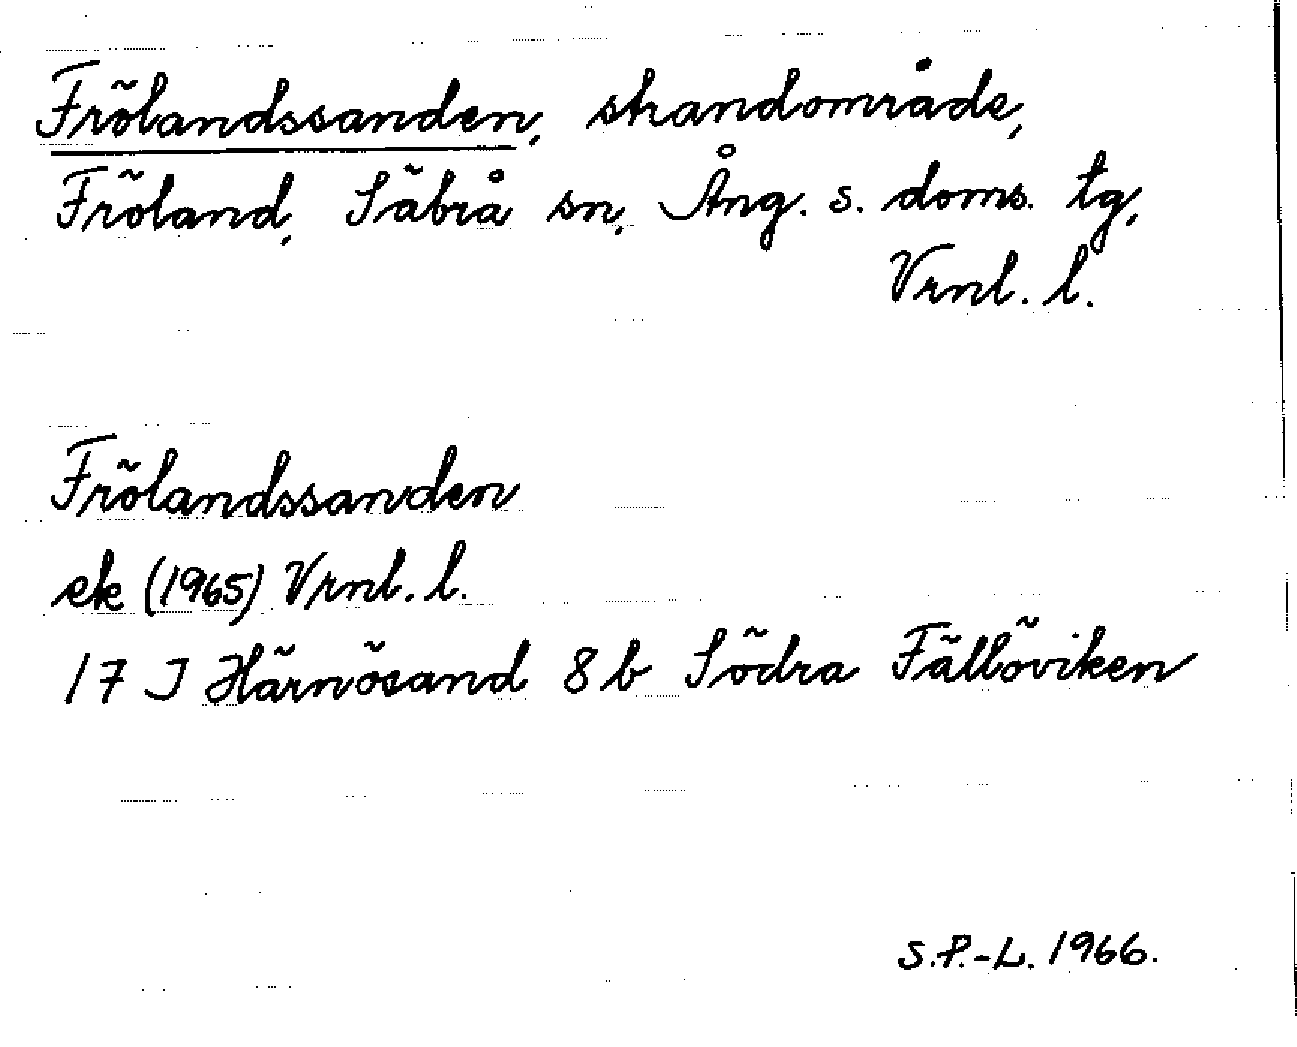 Frölandssanden, strandområde,
Fröland, Säbrå sn, Ång. s. doms. tg,
Vrnl. l.
Frölandssanden
ek (1965) Vrnl. l.
17 J Härnösand 8 b Södra Fällöviken
S.P.-L. 1966.